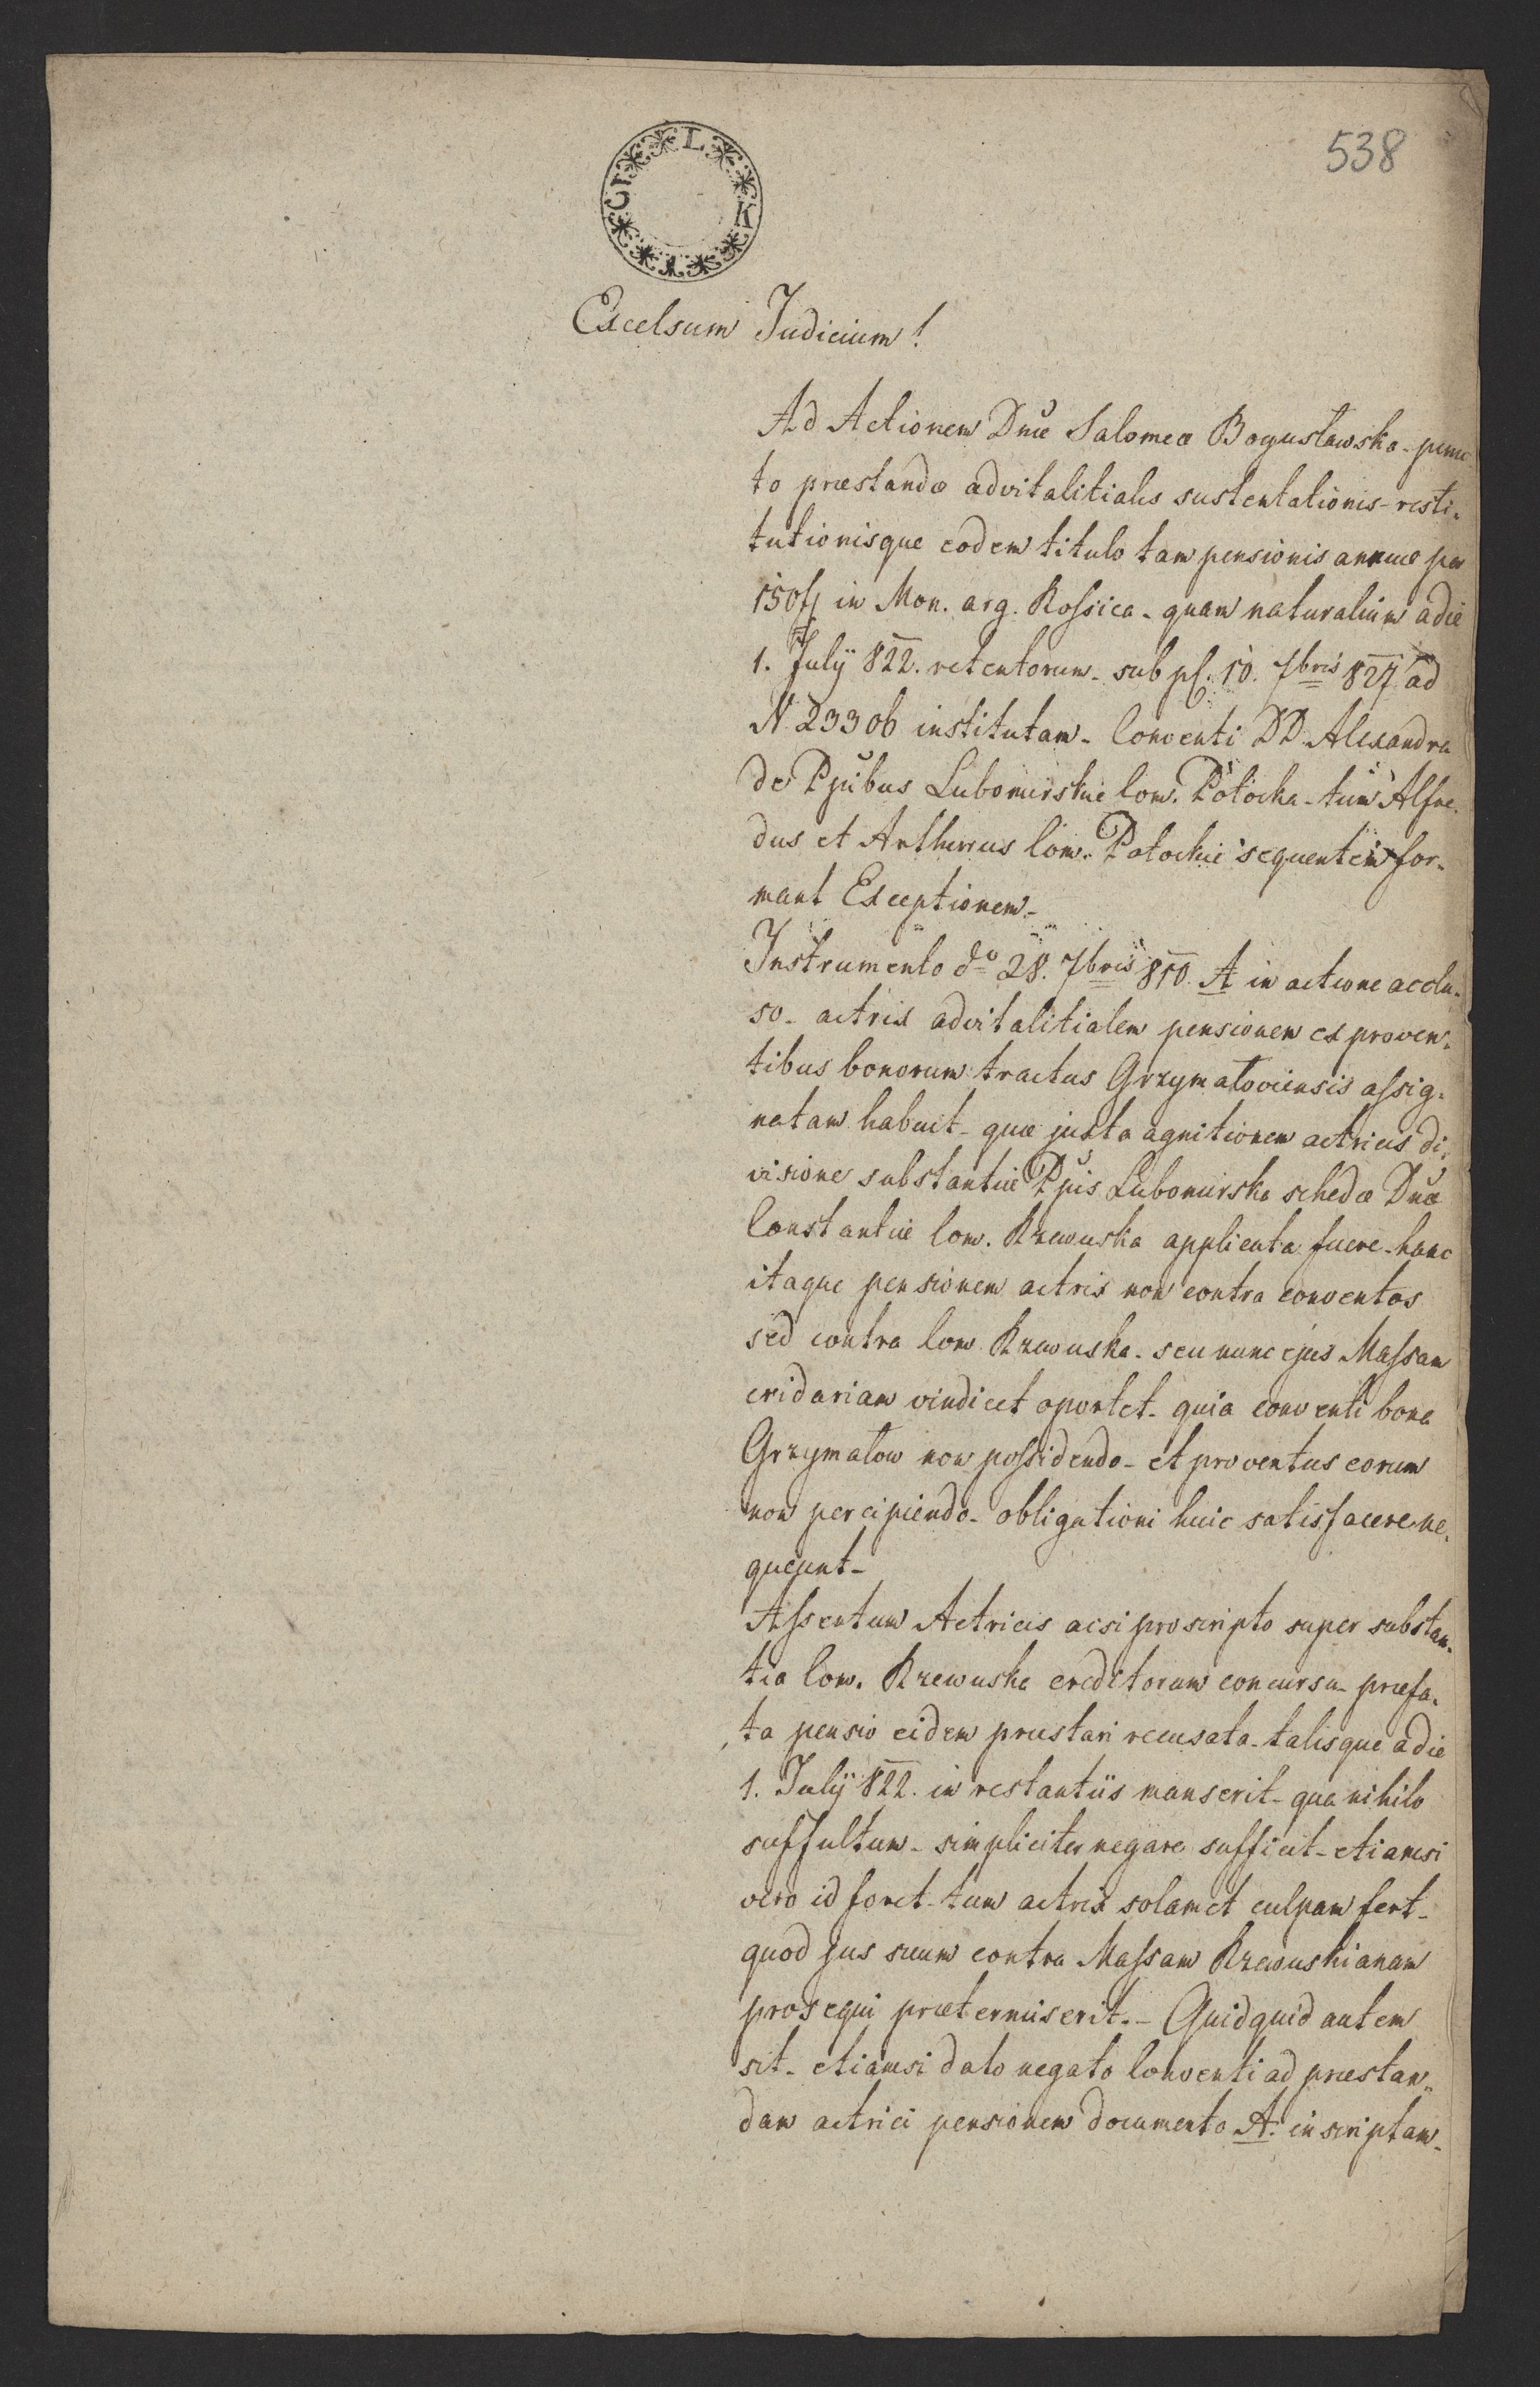 538
L K V CI
Excelsum Judicium!
Ad Actionem Dnæ Salomeæ Bogusławska - punc-
to præstandæ advitalitialis sustentationis - resti-
tutionisque eodem titulo tam pensionis annuæ per
150 f in Mon. arg. Rossica - quam naturalium a die
1. July 822. retentorum - sub ps. 10. 7bris 827. ad
N. 23306 institutam - Conventi DD. Alexandra
de Ppibus Lubomirskie Com. Potocka - tum Alfre-
dus et Arthurus Com. Potockie sequentem for-
mant Exceptionem -
Instrumento do 28. 7bris 810. A in actione acclu-
so - actrix advitalitialem pensionem ex proven-
tibus bonorum tractus Grzymałoviensis assig-
natam habuit - quæ juxta agnitionem actricis di-
visione substantiæ Ppis Lubomirska schedæ Dnæ
Constantiæ Com. Rzewuska applicata fuere - hanc
itaque pensionem actrix non contra conventos
sed contra Com. Rzewuska - seu nunc ejus Massam
cridariam vindicet oportet - quia conventi bona
Grzymałow non possidendo - et proventus eorum
non percipiendo - obligationi huic satisfacere ne-
queunt -
Assertum Actricis acsi proscripto super substan-
tia Com. Rzewuska creditorum concursu - præfa-
ta pensio eidem præstari recusata - talisque a die
1. July 822. in restantiis manserit - qua nihilo
suffultum - simpliciter negare sufficit - etiamsi
vero id foret - tum actrix solamet culpam fert -
quod jus suum contra Massam Rzewuskianam
prosequi prætermiserit. - Quidquid autem
sit - etiamsi dato negato Conventi ad præstan-
dam actrici pensionem documento A. inscriptam -